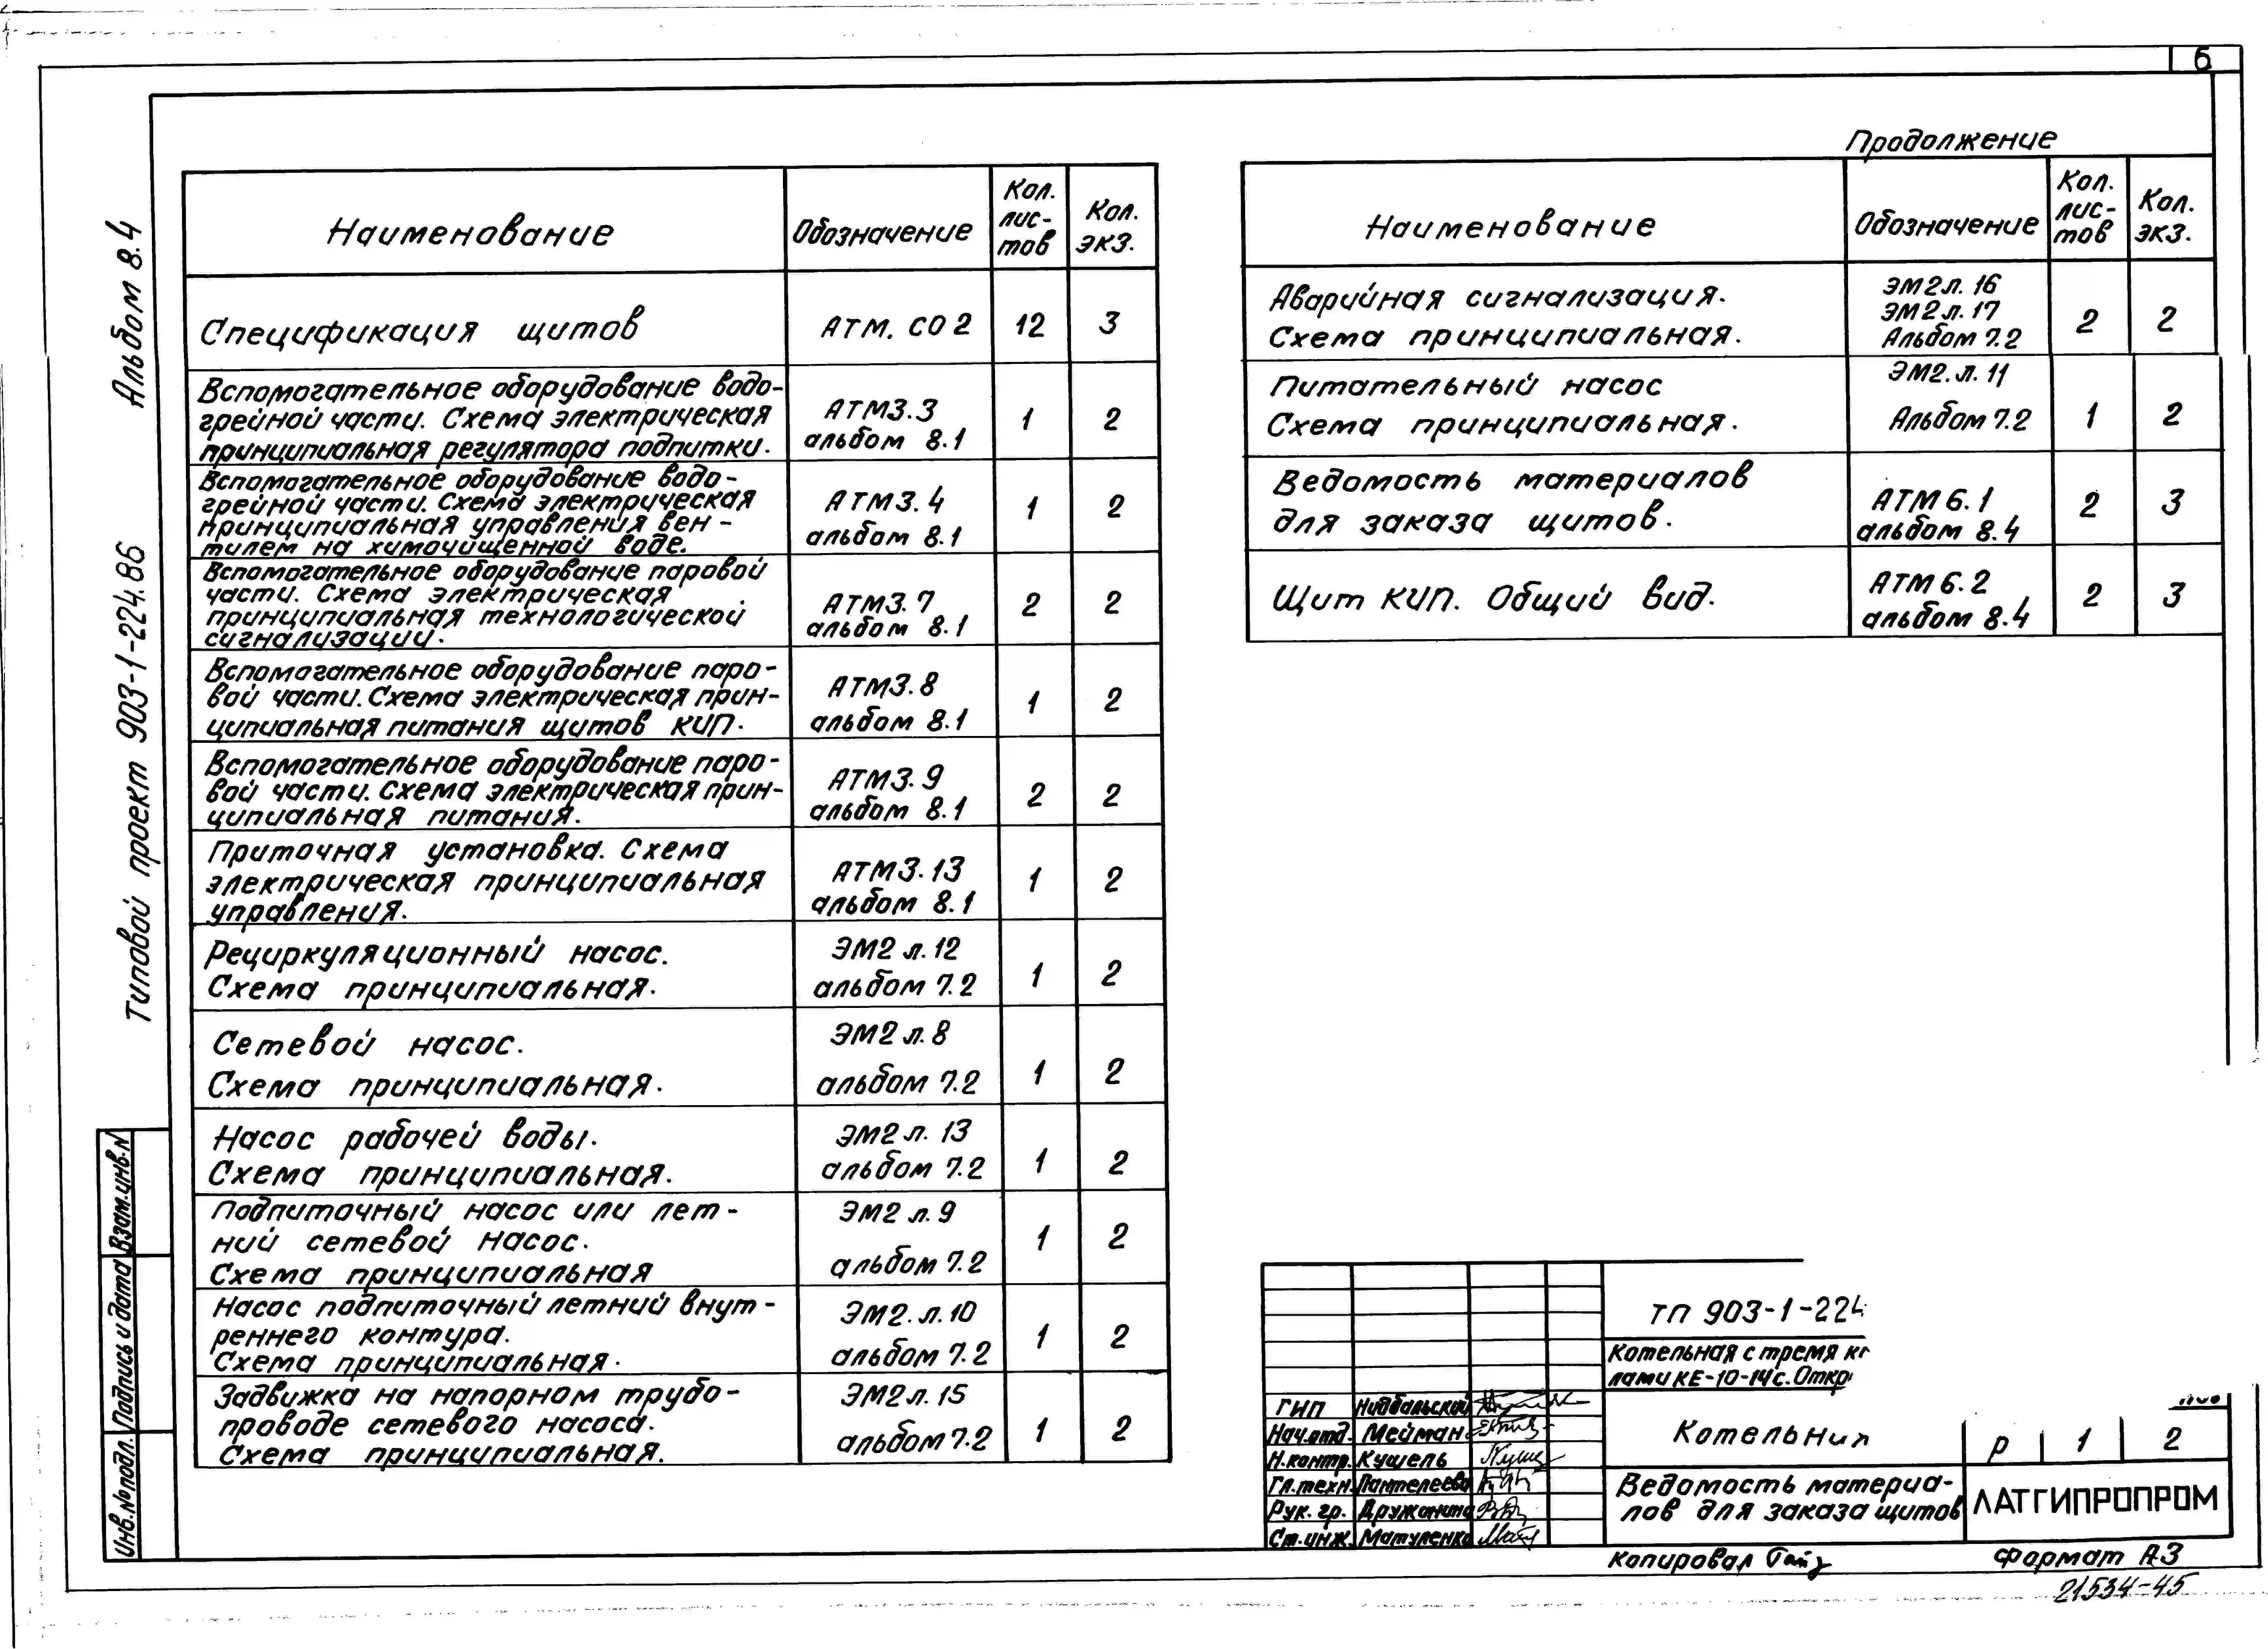 6
Альбом 8.4
Типовой проект 903-1-224.86
Взам.инв.N
Подпись и дата
Инв.№подл.
Наименование
Обозначение
Кол.
лис-
тов
Кол.
экз.
Спецификация щитов
АТМ. СО2
12
3
Вспомогательное оборудование водо-
грейной части. Схема электрическая
принципиальная регулятора подпитки.
АТМ3.3
альбом 8.1
1
2
Вспомогательное оборудование водо-
грейной части. Схема электрическая
принципиальная управления вен-
тилем на химочищенной воде.
АТМ3.4
альбом 8.1
1
2
Вспомогательное оборудование паровой
части. Схема электрическая
принципиальная технологической
сигнализации.
АТМ3.7
альбом 8.1
2
2
Вспомогательное оборудование паро-
вой части. Схема электрическая прин-
ципиальная питания щитов КИП.
АТМ3.8
альбом 8.1
1
2
Вспомогательное оборудование паро-
вой части. Схема электрическая прин-
ципиальная питания.
АТМ3.9
альбом 8.1
2
2
Приточная установка. Схема
электрическая принципиальная
управления.
АТМ3.13
альбом 8.1
1
2
Рециркуляционный насос.
Схема принципиальная.
ЭМ2 л.12
альбом 7.2
1
2
Сетевой насос.
Схема принципиальная.
ЭМ2 л.8
альбом 7.2
1
2
Насос рабочей воды.
Схема принципиальная.
ЭМ2 л. 13
альбом 7.2
1
2
Подпиточный насос или лет-
ний сетевой насос.
Схема принципиальная
ЭМ2 л.9
альбом 7.2
1
2
Насос подпиточный летний внут-
реннего контура.
Схема принципиальная.
ЭМ2.л.10
альбом 7.2
1
2
Задвижка на напорном трубо-
проводе сетевого насоса.
Схема принципиальная.
ЭМ2л.15
альбом 7.2
1
2
Продолжение
Наименование
Обозначение
Кол.
лис-
тов
Кол.
экз.
Аварийная сигнализация.
Схема принципиальная.
ЭМ2л. 16
ЭМ2л. 17
Альбом 7.2
2
2
Питательный насос
Схема принципиальная.
ЭМ2.л.11
Альбом 7.2
1
2
Ведомость материалов
для заказа щитов.
АТМ6.1
альбом 8.4
2
3
Щит КИП. Общий вид.
АТМ6.2
альбом 8.4
2
3
ТП 903-1-224
Котельная с тремя к
лами КЕ-10-14с. Откр
ГИП
Нач.отд. Мейман
Н.контр. Кушель
Гл.техн. Пантелеева
Рук. гр.
Ст.инж. Матуленко
р 1 2
Ведомость материа-
лов для заказа щитов
ЛАТГИПРОПРОМ
Копировал
Формат А3
21534-45